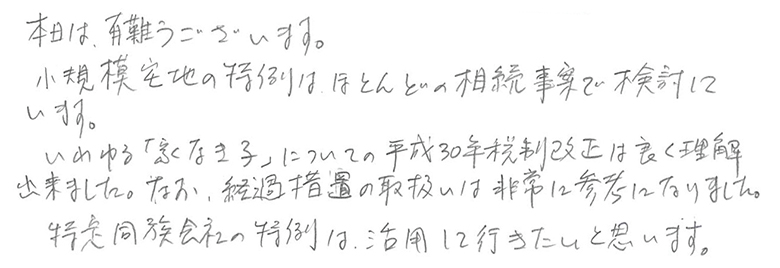 本日は、有難うございます。
小規模宅地の特例は、ほとんどの相続事案で検討して
います。
いわゆる「家なき子」についての平成30年税制改正は良く理解
出来ました。なお、経過措置の取扱いは非常に参考になりました。
特定同族会社の特例は、活用して行きたいと思います。